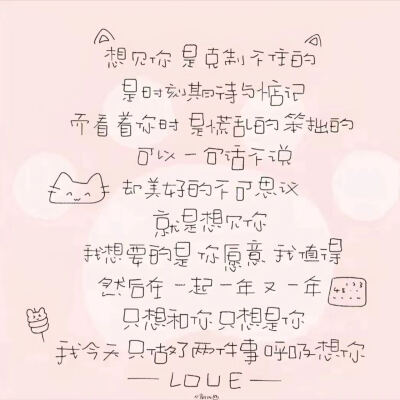 想见你 是克制不住的
是时刻期待与惦记
而看着你时 是慌乱的 笨拙的
可以一句话不说
却美好的不可思议
就是想见你
我想要的是 你愿意 我值得
然后在一起一年又一年
只想和你 只想是你
我今天只做了两件事呼吸想你
— LOUE —